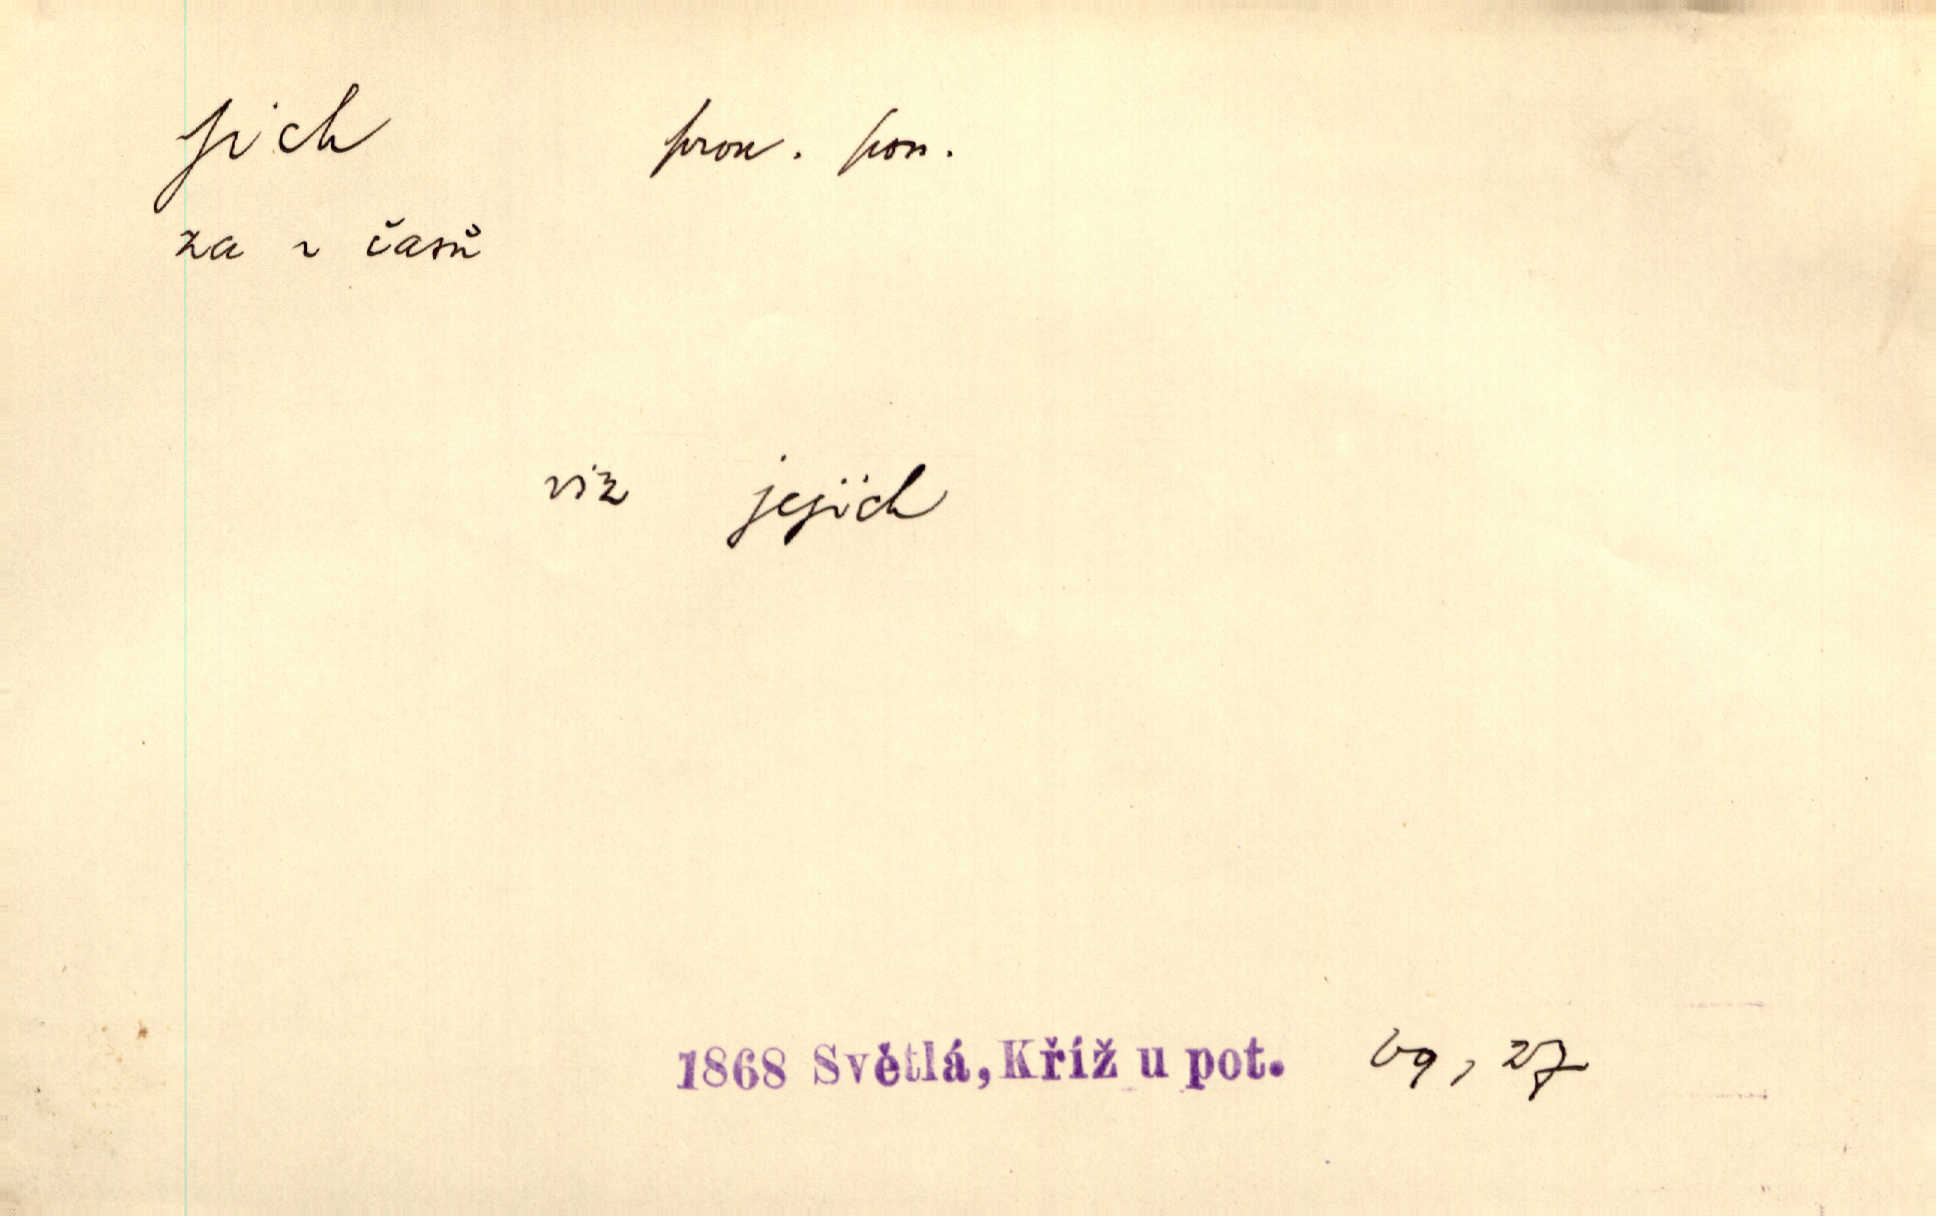 jich pron. poss.
za ~ časů
viz jejich
1868 Světlá, Kříž u pot. 69, 27